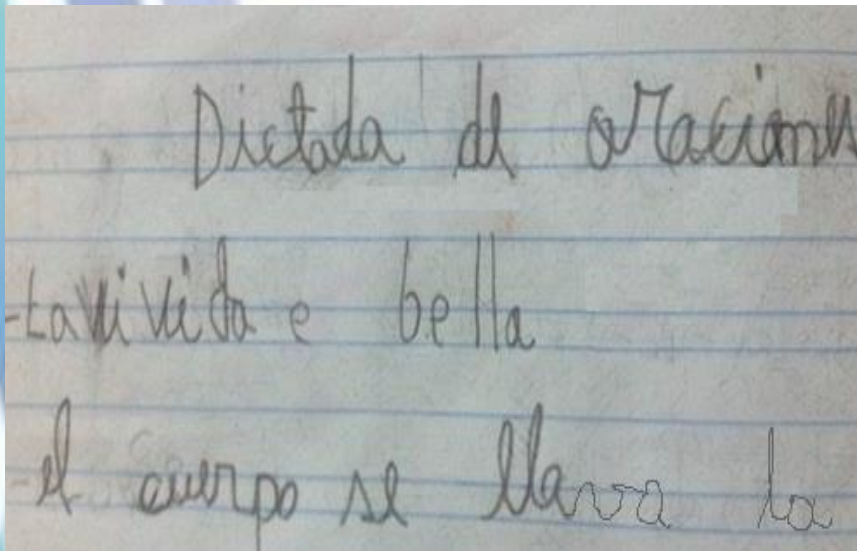 Dictada de oracione
-La vivida e bella
-el cuerpo se llava la